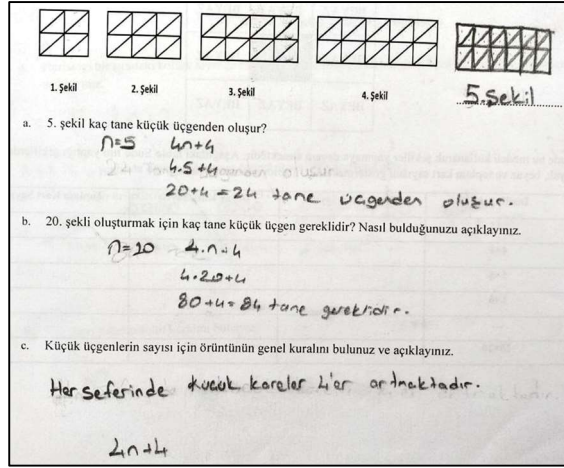 1. Şekil 2. Şekil 3. Şekil 4. Şekil 5. Şekil
a. 5. şekil kaç tane küçük üçgenden oluşur?
n=5 4n+4
4.5+4
20+4 = 24 tane üçgenden oluşur.
b. 20. şekli oluşturmak için kaç tane küçük üçgen gereklidir? Nasıl bulduğunuzu açıklayınız.
n=20 4.n+4
4.20+4
80+4=84 tane gereklidir.
c. Küçük üçgenlerin sayısı için örüntünün genel kuralını bulunuz ve açıklayınız.
Her seferinde küçük kareler 4'er artmaktadır.
4n+4